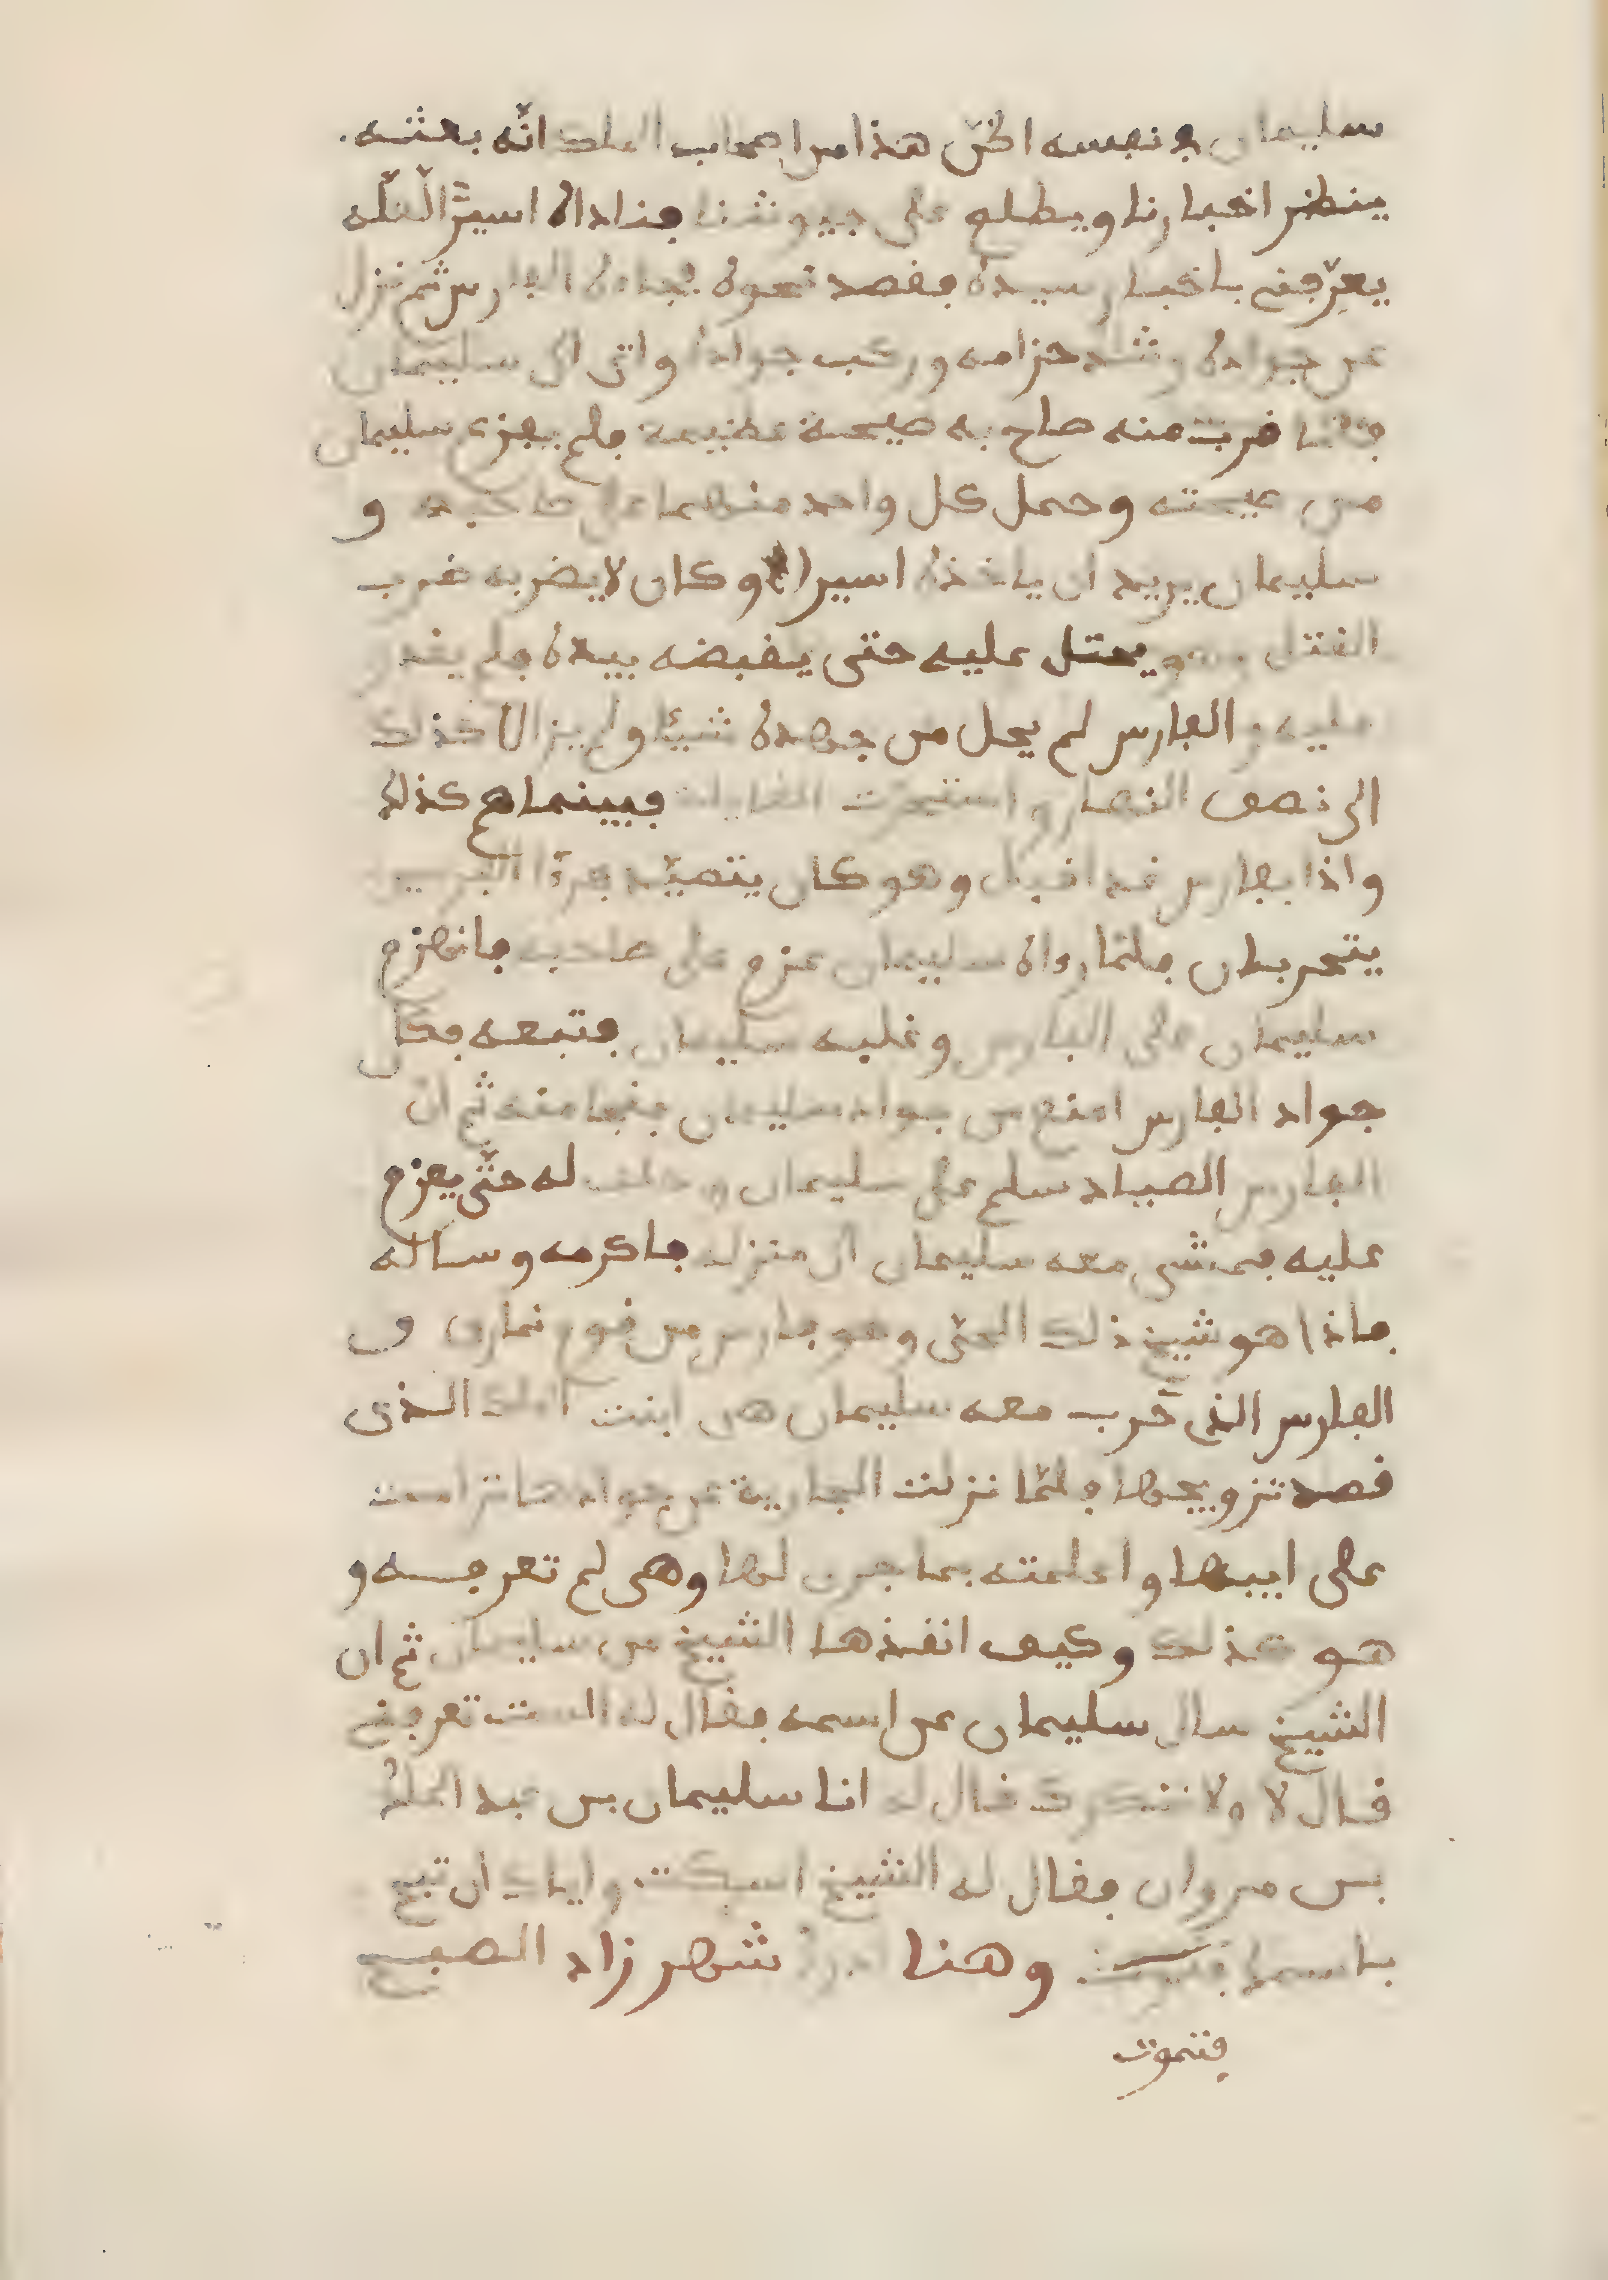 سليمان في نفسه اظن هذا من اصحاب الملك انه بعثه
ينظر اخبارنا ويطلع على جيوشنا فناداه اسير الغله
يعرفني باخبار سيده فقصد نحوه فجاءه الفارس ثم نزل
عن جواده وشد حزامه وركب جواده واتى الى سليمان
فلما قرب منه صاح به صيحة عظيمة فلم يفزع سليمان
من صيحته وحمل كل واحد منهما على صاحبه و
سليمان يريد ان ياخذه اسيرا وكان لا يضربه ضرب
القتل وهو يحتل عليه حتى يقبضه بيده فلم يقدر
عليه والفارس لم يخل من جهده شيئا ولم يزالا كذلك
الى نصف النهار واستحرت القايلة فبينما هم كذلك
واذا بفارس قد اقبل وهو كان يتصيد فرءا الفرسين
يتحربان فلما رواه سليمان عزم على صاحبه فانهزم
سليمان على الفارس وغلبه سليمان فتبعه فكان
جواد الفارس امنع من جواد سليمان فنجا منه ثم ان
الفارس الصياد سلم على سليمان وحلف له حتى يعزم
عليه فمشى معه سليمان الى منزله فاكرمه وساله
فاذا هو شيخ ذلك الحي وهو فارس من قوم نمارى و
الفارس الذي حرب معه سليمان هى ابنت الملك الذى
قصد تزويجها فلما نزلت الجارية عن جوادها ترامت
على ابيها واعلمته بما جرى لها وهى لم تعرفه و
هو كذلك وكيف انقذها الشيخ من سليمان ثم ان
الشيخ سال سليمان عن اسمه فقال له الست تعرفني
قال لا ولا ننكرك قال له انا سليمان بن عبد الملك
بن مروان فقال له الشيخ اسكت واياك ان تبح
باسمك فتموت وهنا ادرك شهرزاد الصبح
فتموت